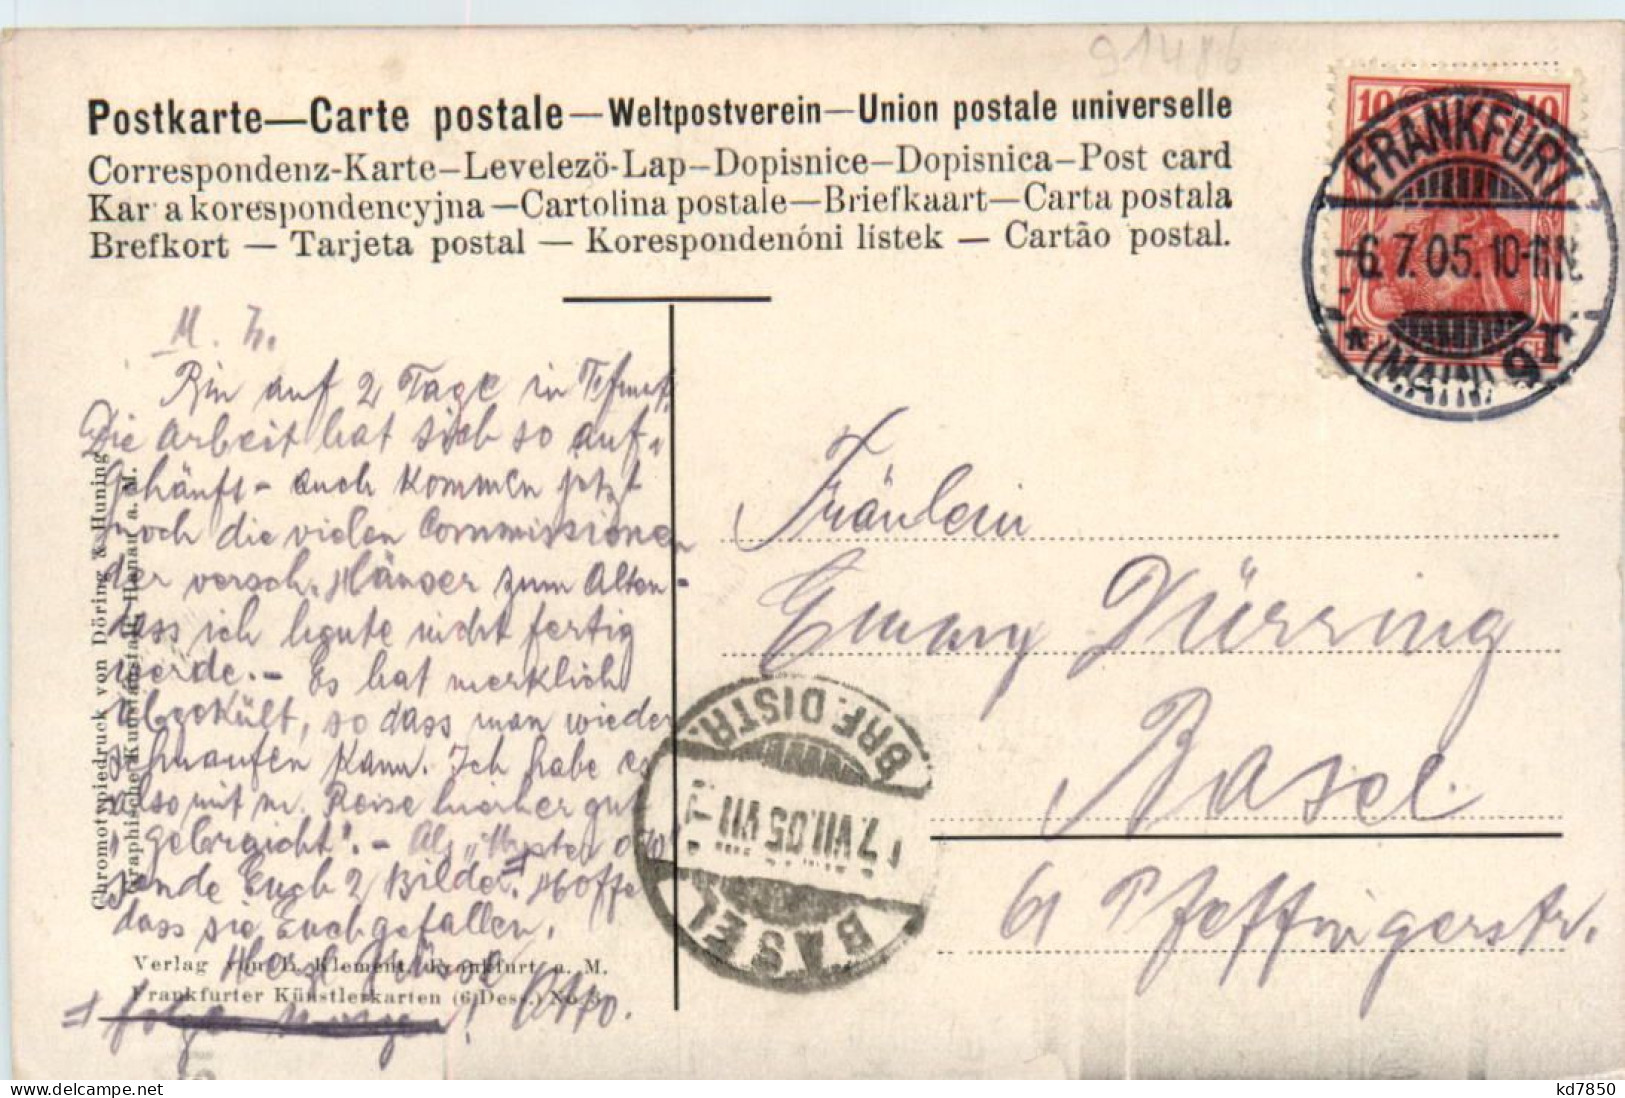 91486
Postkarte—Carte postale—Weltpostverein—Union postale universelle
Correspondenz-Karte–Levelezö-Lap–Dopisnice–Dopisnica–Post card
Kar a korespondencyjna—Cartolina postale—Briefkaart—Carta postala
Brefkort — Tarjeta postal — Korespondenóni lístek — Cartão postal.
10 10
FRANKFURT
-6.7.05.10-11N.
* (MAIN) 9r.
M. L.
Bin auf 2 Tage in
Die Arbeit hat sich so auf-
gehäuft - auch kommen jetzt
noch die vielen Commissionen
der versch. Häuser zum Alten -
dass ich heute nicht fertig
werde. - Es hat merklich
abgekühlt, so dass man wieder
schnaufen kann. Ich habe es
also mit m. Reise hierher gut
"gebraicht". - Als "Muster o/W"
sende Euch 2 Bilder. Hoffe
dass sie Euch gefallen.
Herzl. Grüsse
Otto.
folgen morgen!
Fräulein
Emmy Dürring
Basel
61 Pfeffingerstr.
BRF. DISTR.
7.VII.05.VII
BASEL
Chromotypiedruck von Döring & Huning
Graphische Kunstanstalt, Hanau a. M.
Verlag von B. Klement, Frankfurt a. M.
Frankfurter Künstlerkarten (6 Dess.) No 3.
delcampe.net
kd7850